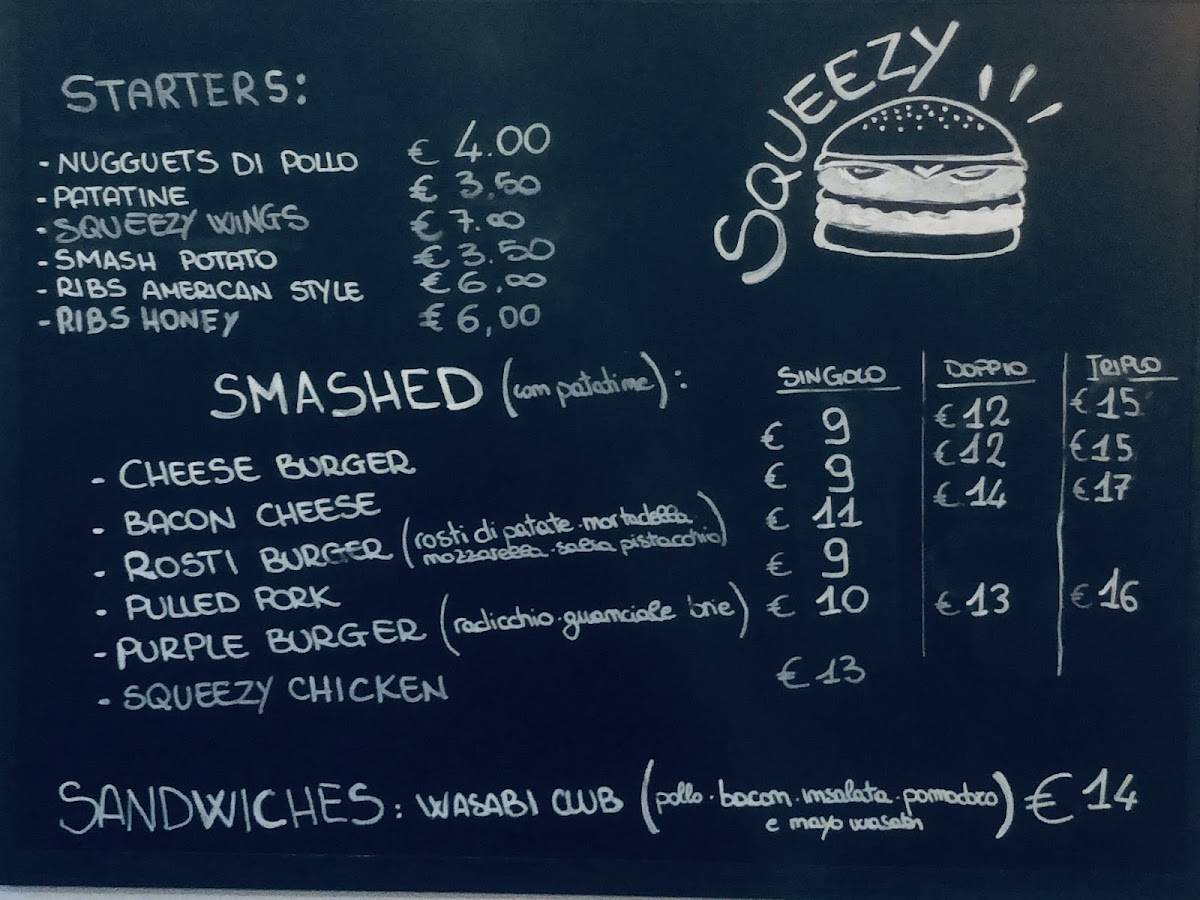 SQUEEZY
STARTERS:
- NUGGUETS DI POLLO € 4.00
- PATATINE € 3,50
- SQUEEZY WINGS € 7.00
- SMASH POTATO € 3.50
- RIBS AMERICAN STYLE € 6,00
- RIBS HONEY € 6,00
SMASHED (con patatine): SINGOLO DOPPIO TRIPLO
- CHEESE BURGER € 9 € 12 € 15
- BACON CHEESE € 9 € 12 € 15
- ROSTI BURGER (rosti di patate · mortadella € 11 € 14 € 17
mozzarella · salsa pistacchio)
- PULLED PORK € 9
- PURPLE BURGER (radicchio · guanciale brie) € 10 € 13 € 16
- SQUEEZY CHICKEN € 13
SANDWICHES: WASABI CLUB (pollo · bacon · insalata · pomodoro € 14
e mayo wasabi)